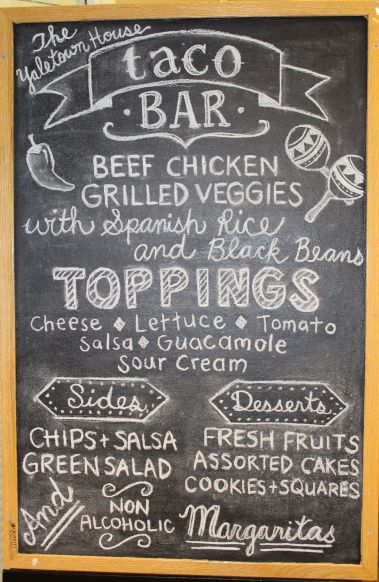 The
Yaletown House
taco
BAR
BEEF CHICKEN
GRILLED VEGGIES
with Spanish Rice
and Black Beans
TOPPINGS
Cheese ◆ Lettuce ◆ Tomato
Salsa ◆ Guacamole
Sour Cream
Sides
CHIPS + SALSA
GREEN SALAD
Desserts
FRESH FRUITS
ASSORTED CAKES
COOKIES + SQUARES
And
NON
ALCOHOLIC
Margaritas